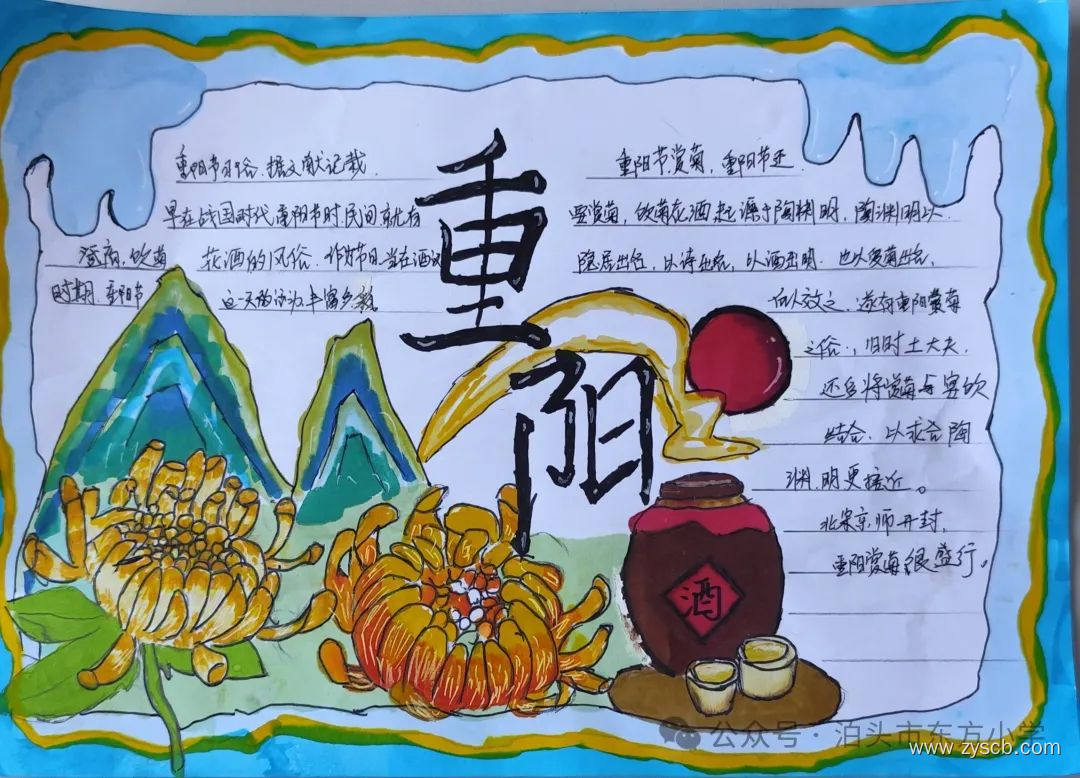 重阳
重阳节习俗.据文献记载.
早在战国时代,重阳节时民间就有
登高,饮菊 花酒的风俗.作好节日.当在酒汉
时期.重阳节 这一天的活动丰富多教
重阳节赏菊,重阳节还
要赏菊,饮菊花酒起源于陶渊明,陶渊明以
隐居出名,以诗出名,以酒出明.也以爱菊出名,
后人效之.遂有重阳赏菊
之俗.,旧时士大夫.
还多将赏菊与宴饮
结合.以求合陶
渊.明更接近。
北宋京师开封,
重阳赏菊很盛行。
酒
公众号·泊头市东方小学
www.zyscb.com